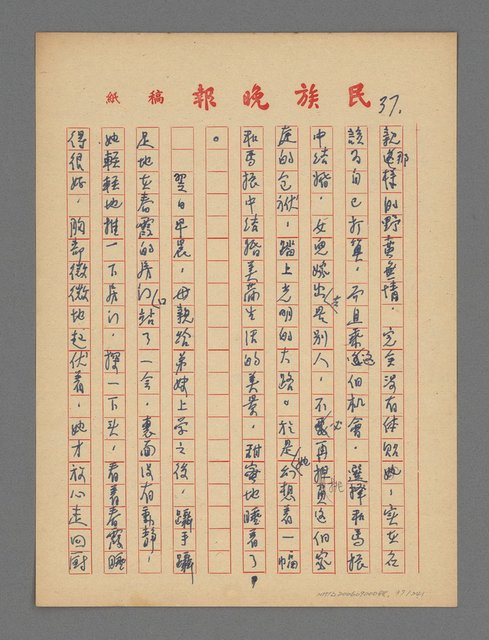 民族晚報 稿紙
37.
親那樣的野蠻無情，完全沒有体貼她，实在应
該為自己打算，而且乘這個机會，選擇和馬振
中结婚，女兒嫁出去是別人，不必再担負这個家
庭的包袱，踏上光明的大路。於是她幻想着一幅
和馬振中结婚美滿生活的美景，甜蜜地睡着了
。
翌日早晨，母親给弟妹上学之後，躡手躡
足地在春霞的房门口站了一会，裏面没有動静，
她輕輕地推一下房门，探一下头，看看春霞睡
得很好，胸部微微地起伏着，她才放心走回厨